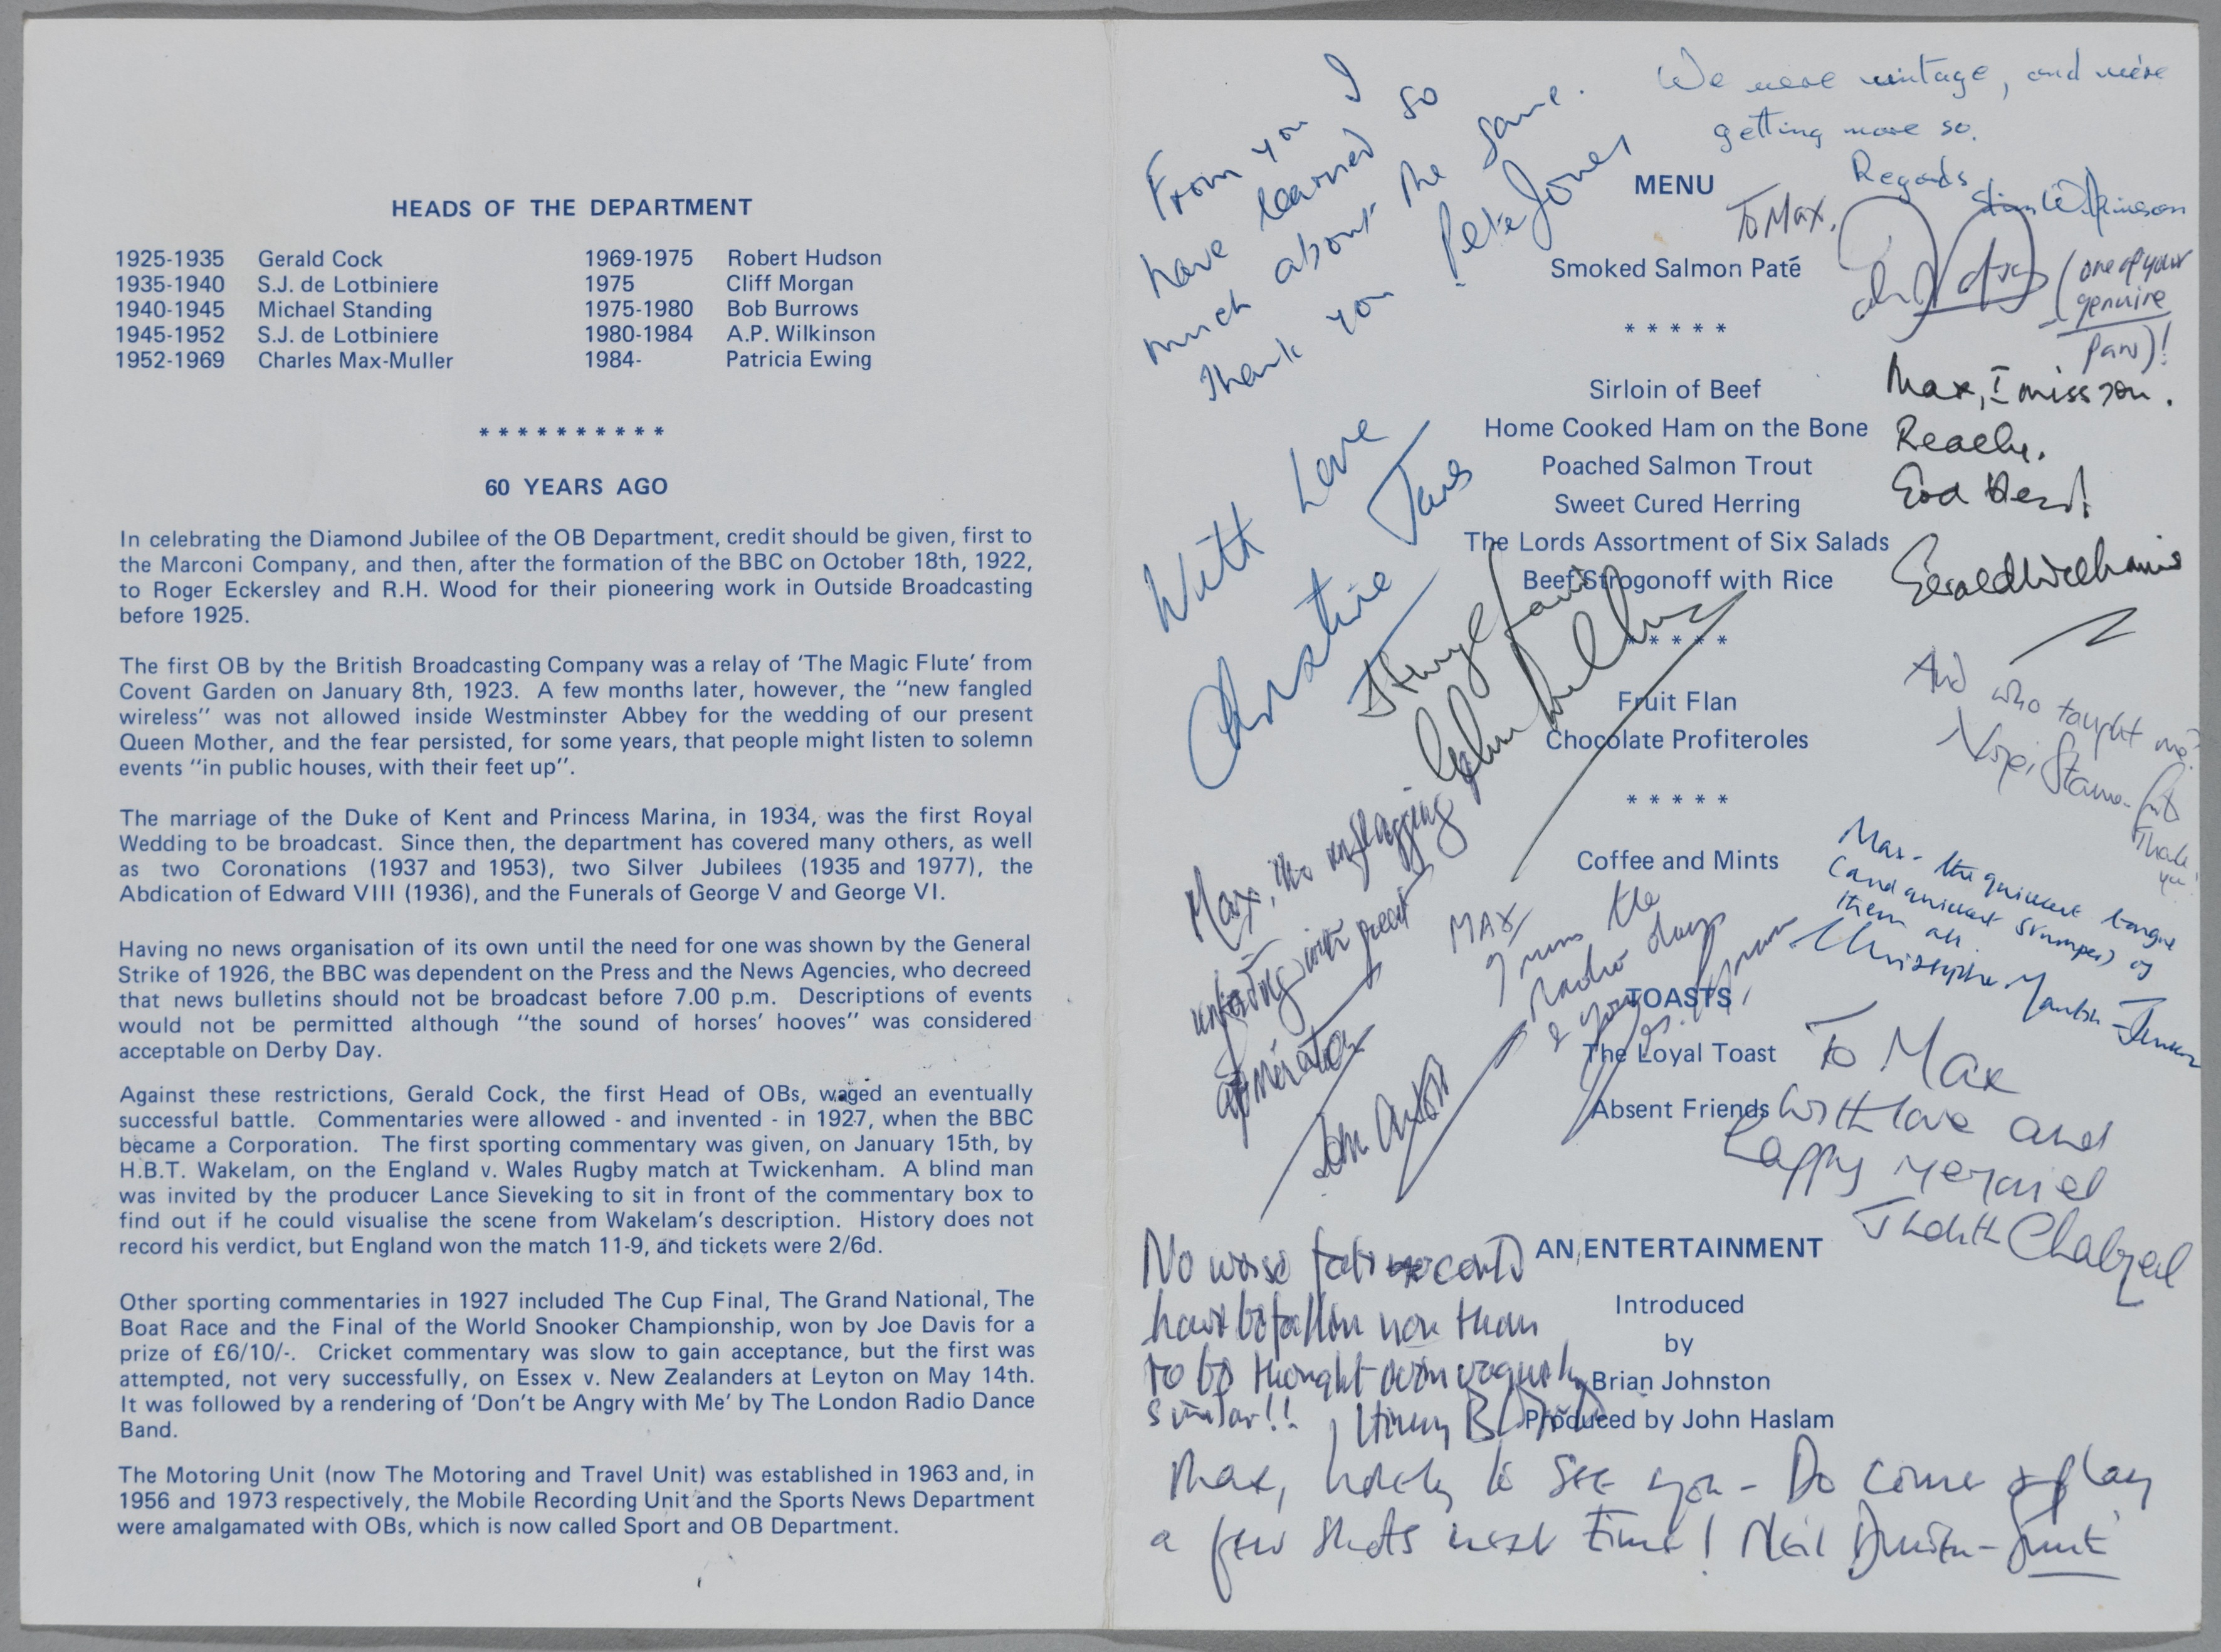 HEADS OF THE DEPARTMENT
1925-1935 Gerald Cock
1935-1940 S.J. de Lotbiniere
1940-1945 Michael Standing
1945-1952 S.J. de Lotbiniere
1952-1969 Charles Max-Muller
1969-1975 Robert Hudson
1975 Cliff Morgan
1975-1980 Bob Burrows
1980-1984 A.P. Wilkinson
1984- Patricia Ewing
* * * * * * * * * *
60 YEARS AGO
In celebrating the Diamond Jubilee of the OB Department, credit should be given, first to
the Marconi Company, and then, after the formation of the BBC on October 18th, 1922,
to Roger Eckersley and R.H. Wood for their pioneering work in Outside Broadcasting
before 1925.
The first OB by the British Broadcasting Company was a relay of ‘The Magic Flute’ from
Covent Garden on January 8th, 1923. A few months later, however, the “new fangled
wireless” was not allowed inside Westminster Abbey for the wedding of our present
Queen Mother, and the fear persisted, for some years, that people might listen to solemn
events “in public houses, with their feet up”.
The marriage of the Duke of Kent and Princess Marina, in 1934, was the first Royal
Wedding to be broadcast. Since then, the department has covered many others, as well
as two Coronations (1937 and 1953), two Silver Jubilees (1935 and 1977), the
Abdication of Edward VIII (1936), and the Funerals of George V and George VI.
Having no news organisation of its own until the need for one was shown by the General
Strike of 1926, the BBC was dependent on the Press and the News Agencies, who decreed
that news bulletins should not be broadcast before 7.00 p.m. Descriptions of events
would not be permitted although “the sound of horses’ hooves” was considered
acceptable on Derby Day.
Against these restrictions, Gerald Cock, the first Head of OBs, waged an eventually
successful battle. Commentaries were allowed - and invented - in 1927, when the BBC
became a Corporation. The first sporting commentary was given, on January 15th, by
H.B.T. Wakelam, on the England v. Wales Rugby match at Twickenham. A blind man
was invited by the producer Lance Sieveking to sit in front of the commentary box to
find out if he could visualise the scene from Wakelam’s description. History does not
record his verdict, but England won the match 11-9, and tickets were 2/6d.
Other sporting commentaries in 1927 included The Cup Final, The Grand National, The
Boat Race and the Final of the World Snooker Championship, won by Joe Davis for a
prize of £6/10/-. Cricket commentary was slow to gain acceptance, but the first was
attempted, not very successfully, on Essex v. New Zealanders at Leyton on May 14th.
It was followed by a rendering of ‘Don’t be Angry with Me’ by The London Radio Dance
Band.
The Motoring Unit (now The Motoring and Travel Unit) was established in 1963 and, in
1956 and 1973 respectively, the Mobile Recording Unit and the Sports News Department
were amalgamated with OBs, which is now called Sport and OB Department.
From you I
have learned so
much about the same.
Thank you. Peter Jones
We were vintage, and we're
getting more so.
Regards
Wilkinson
MENU
To Max,
(one of your
genuine
pars)!
Smoked Salmon Paté
* * * * *
Sirloin of Beef
Home Cooked Ham on the Bone
Poached Salmon Trout
Sweet Cured Herring
The Lords Assortment of Six Salads
Beef Strogonoff with Rice
* * * * *
Max, I miss you.
Really.
God Bless!
Gerald Williams
With Love
Christine
Fruit Flan
Chocolate Profiteroles
* * * * *
And who taught me?
Nigel Starmer-Smith
Thank
you!
Coffee and Mints
Max - the quickest tongue
(and quickest stumper) of
them all.
Christopher Martin-Jenkins
Max, the unflagging
with great
appreciation
MAX
I miss the
radio days
& you
TOASTS
The Loyal Toast
Absent Friends
To Max
with love and
happy memories
Judith Chalmers
AN ENTERTAINMENT
Introduced
by
Brian Johnston
Produced by John Haslam
No worse fate could
have befallen you than
to be thought even vaguely
similar!! Henry Blofeld
Max, lovely to see you - Do come & play
a few shots next time! Neil Durden-Smith